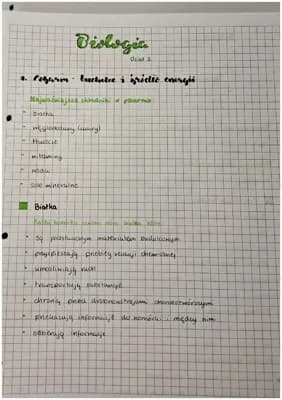 Biologia
Dział 2
1. Pokarm - budulec i źródło energii
Najważniejsze składniki w pokarmie:
- białka
- węglowodany (cukry)
- tłuszcze
- witaminy
- woda
- sole mineralne
Białka
Każda komórka zawiera białka, które
- są podstawowym materiałem budulcowym
- przyspieszają przebieg reakcji chemicznej
- umożliwiają ruch
- transportują substancje
- chronią przed drobnoustrojami chorobotwórczymi
- przekazują informacje do komórki i między nimi
- odbierają informacje